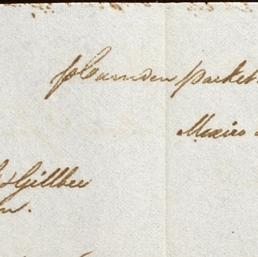 p Camden packet
Mexico
& Gillbee